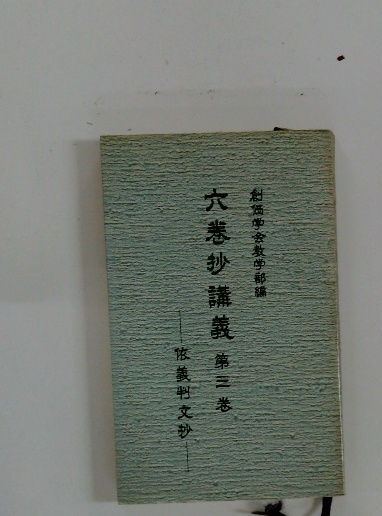 創価学会教学部編
六巻抄講義 第三巻
―依義判文抄―